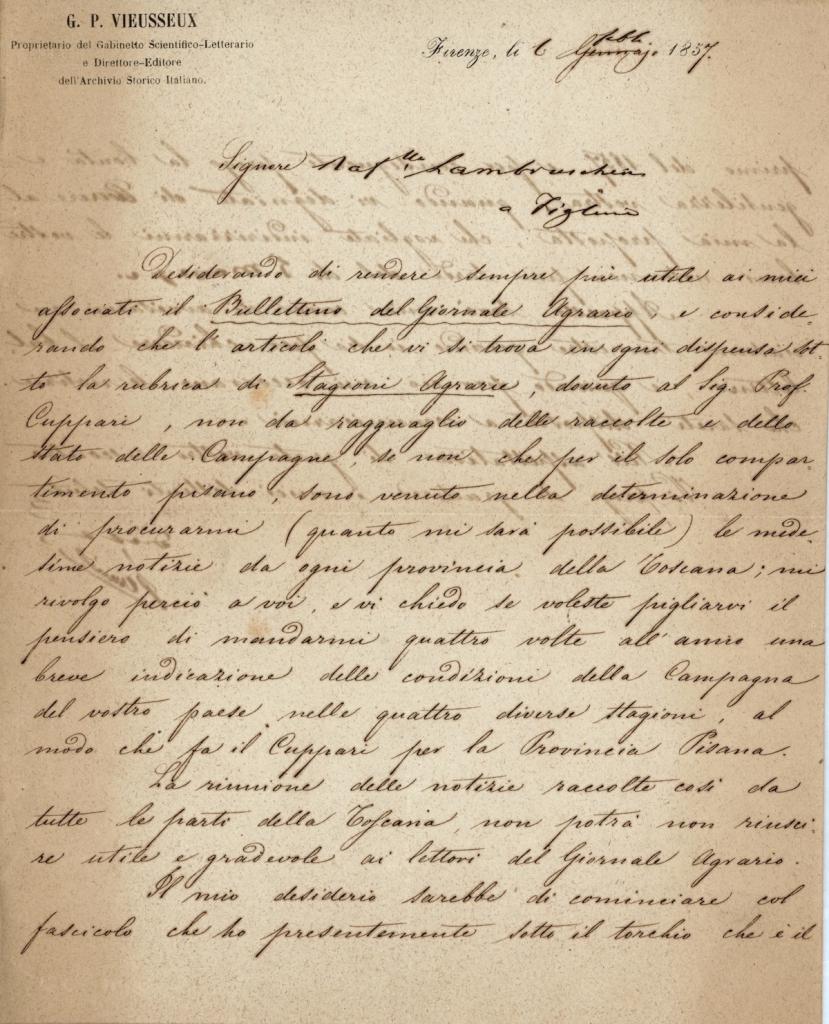 G. P. VIEUSSEUX
Proprietario del Gabinetto Scientifico-Letterario
e Direttore-Editore
dell'Archivio Storico Italiano.
Firenze, li 6 Gennajo febb. 1857.
Signore Raf.lle Lambruschini
a Figline
Desiderando di rendere sempre più utile ai miei
associati il Bullettino del Giornale Agrario, e conside-
rando che l'articolo che vi si trova in ogni dispensa sot-
to la rubrica di Stagioni Agrarie, dovuto al Sig. Prof.
Cuppari, non da ragguaglio delle raccolte e dello
stato delle Campagne, se non che per il solo compar-
timento pisano, sono venuto nella determinazione
di procurarmi (quanto mi sarà possibile) le mede-
sime notizie da ogni provincia della Toscana; mi
rivolgo perciò a voi, e vi chiedo se voleste pigliarvi il
pensiero di mandarmi quattro volte all'anno una
breve indicazione delle condizioni della Campagna
del vostro paese nelle quattro diverse stagioni, al
modo che fa il Cuppari per la Provincia Pisana.
La riunione delle notizie raccolte così da
tutte le parti della Toscana, non potrà non riusci-
re utile e gradevole ai lettori del Giornale Agrario.
Il mio desiderio sarebbe di cominciare col
fascicolo che ho presentemente sotto il torchio che è il